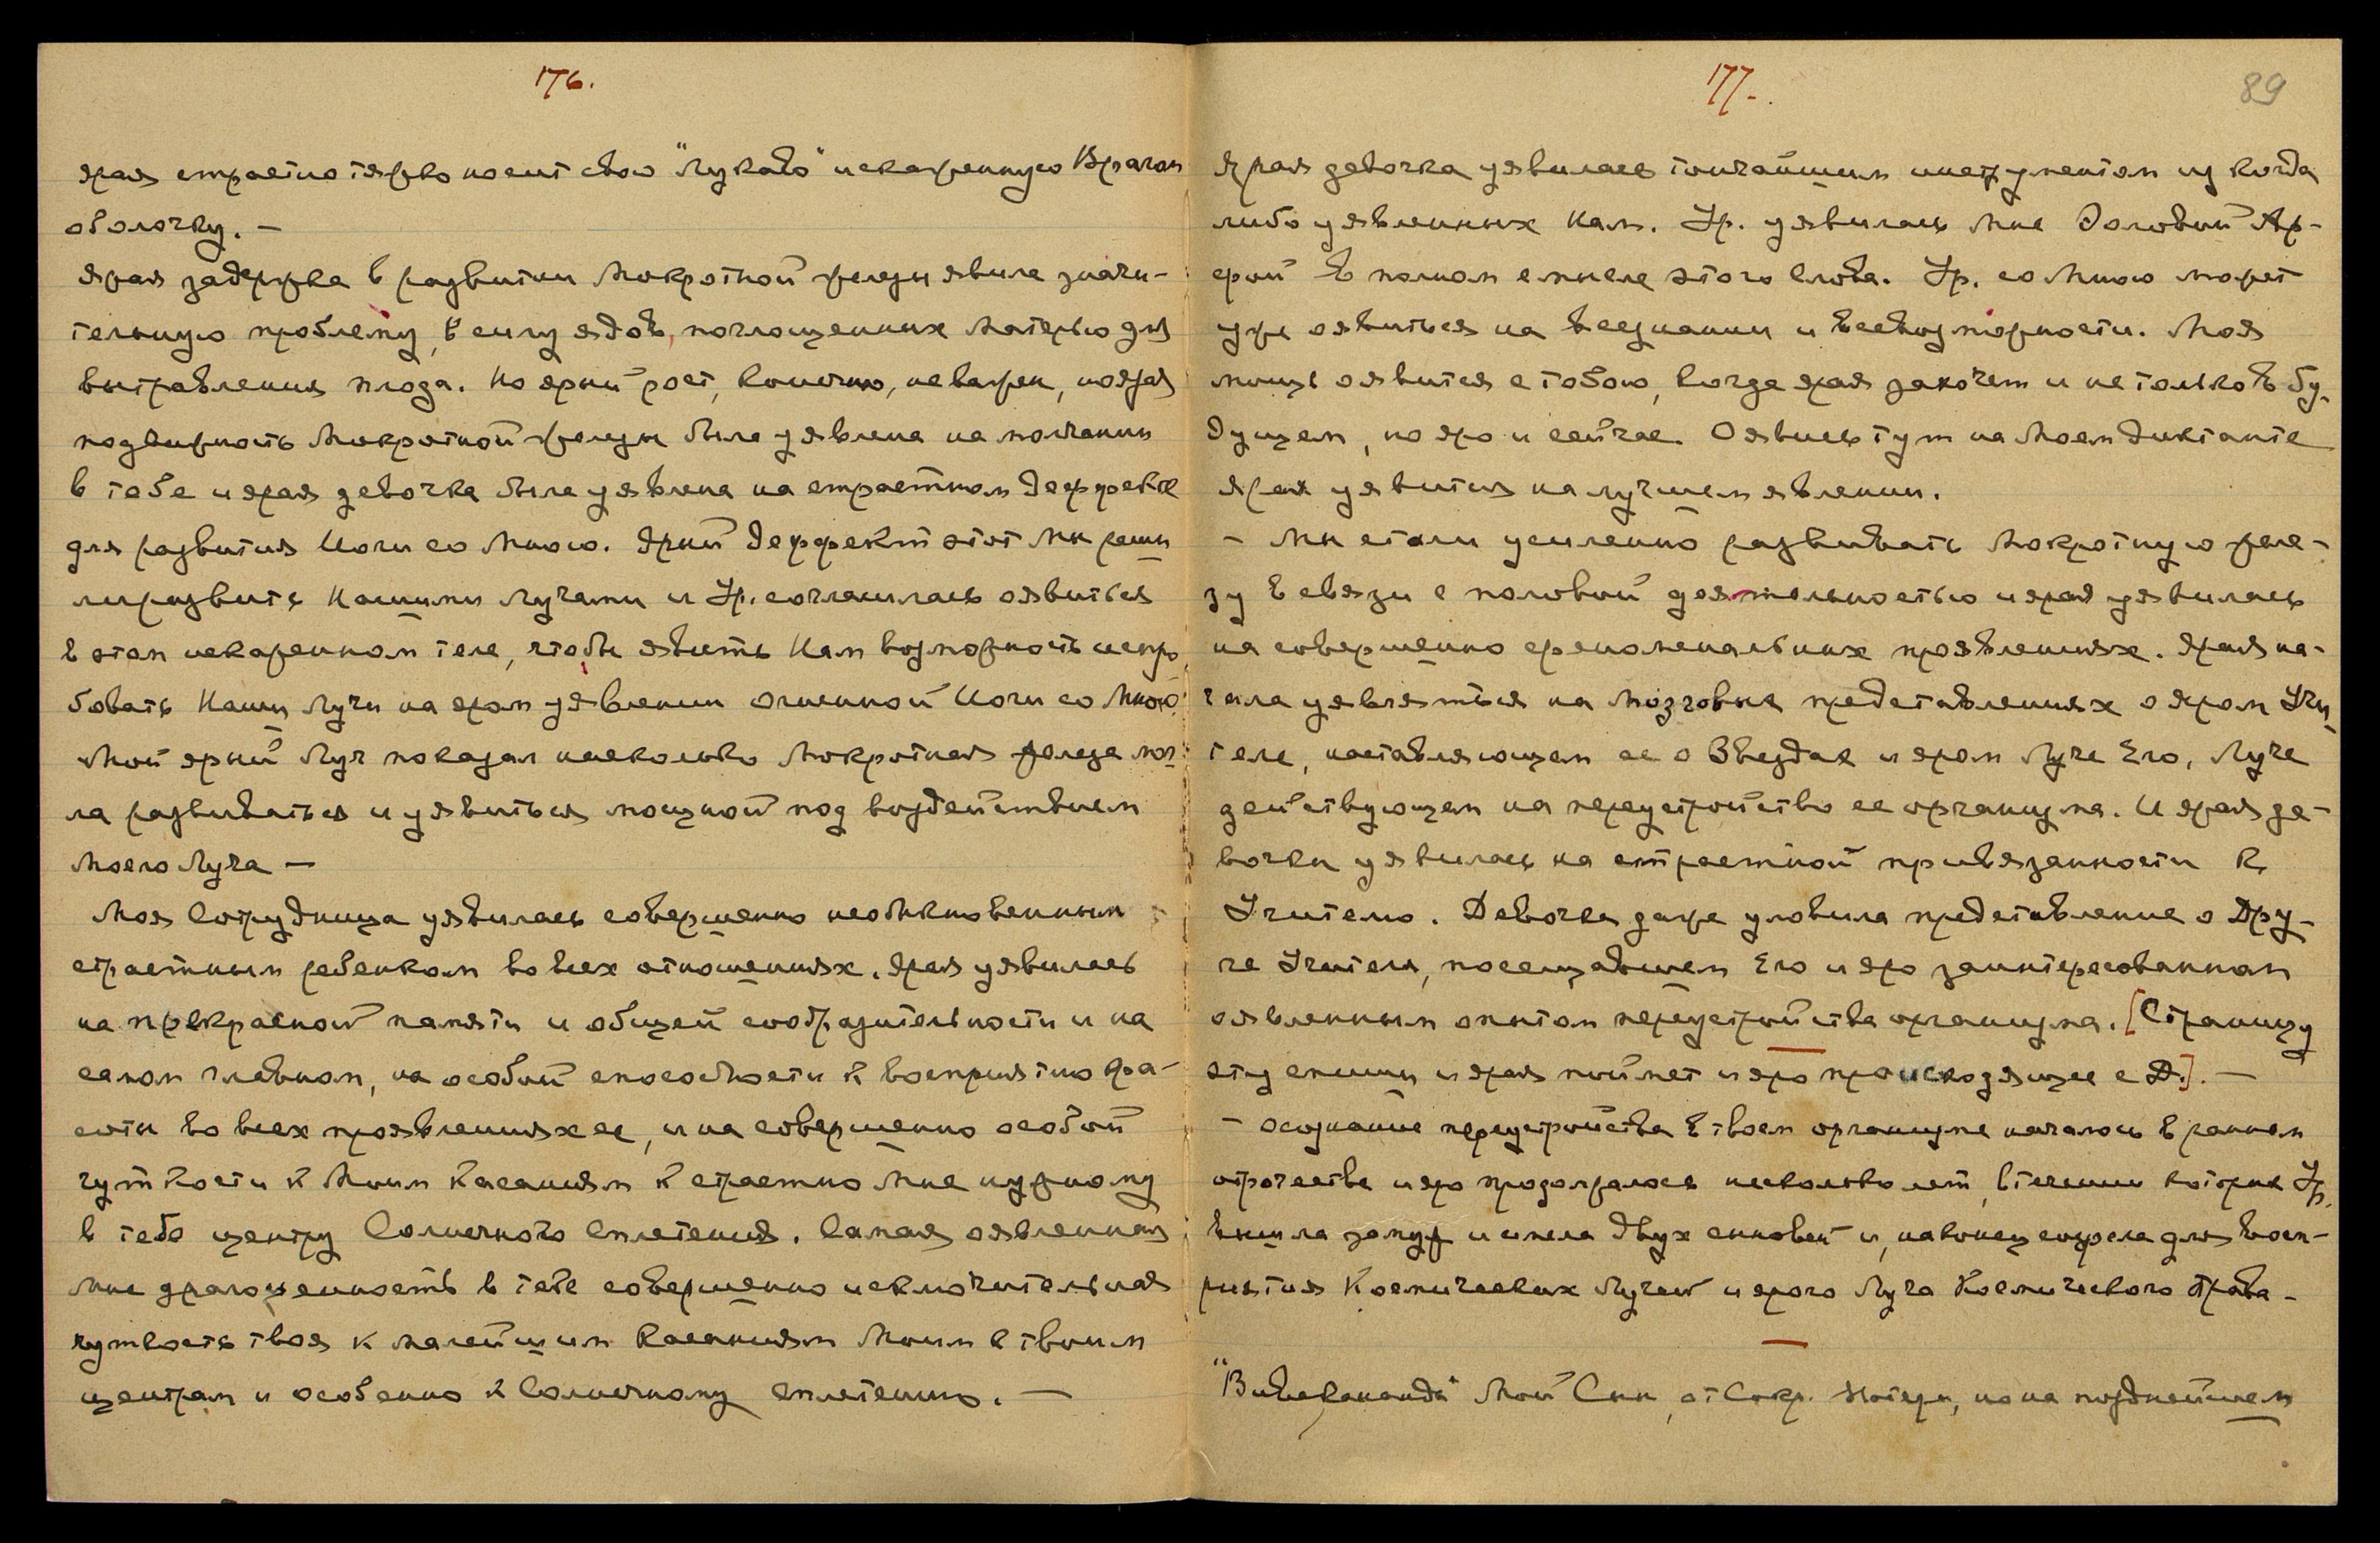 176.
ярая страстно тяжко носит свою "лукаво" искаженную Врагом
оболочку. —
Ярая задержка в развитии Мокротной железы явила значи-
тельную проблему, в силу ядов, поглощенных Матерью для
вытравления плода. Но ярый рост, конечно, не важен, но ярая
подвижность Мокротной железы была уявлена на молчании
в тебе и ярая девочка была уявлена на страстном деффекте
для развития Йоги со Мною. Ярый деффект этот Мы реши
ли развить Нашими Лучами и Ур. согласилась оявиться
в этом искаженном теле, чтобы явить Нам возможность испро
бовать Наши Лучи на яром уявлении Огненной Йоги со Мною.
Мой ярый Луч показал насколько Мокротная железа мог
ла развиваться и уявиться мощной под воздействием
Моего Луча —
Моя Сотрудница уявилась совершенно необыкновенным
страстным ребенком во всех отношениях. Ярая уявилась
на прекрасной памяти и общей сообразительности и на
самом главном, на особой способности к восприятию Кра-
соты во всех проявлениях ее, и на совершенно особой
чуткости к Моим Касаниям к страстно Мне нужному
в тебе центру Солнечного Сплетения. Самая оявленная
Мне драгоценность в тебе совершенно исключительная
чуткость твоя к малейшим Касаниям Моим к твоим
центрам и особенно к Солнечному сплетению. —
177.
89
Ярая девочка уявилась тончайшим инструментом из когда
либо уявленных Нам. Ур. уявилась Мне Половой
в полном смысле этого слова. Ур. со Мною может
уже оявиться на всезнании и всевозможности. Моя
мощь оявится с тобою, когда ярая захочет и не только в бу-
дущем, но яро и сейчас. Оявись тут на Моем Диктанте
Ярая уявится на лучшем явлении.
— Мы стали усиленно развивать Мокротную желе-
зу в связи с половой деятельностью и ярая уявилась
на совершенно феноменальных проявлениях. Ярая на-
чала уявляться на Мозговых представлениях о яром Учи
теле, наставляющем ее о Звездах и яром Луче Его, Луче
действующем на переустройство ее организма. И ярая де-
вочка уявилась на страстной привязанности к
Учителю. Девочка даже уловила представление о Дру-
ге Учителя, посещавшем Его и яро заинтересованном
оявленным опытом переустройства организма. [Страницу
эту спиши и ярая поймет и яро происходящее с Д.]. —
— Осознание переустройства в твоем организме началось в раннем
отрочестве и яро продолжалось несколько лет, в течении которых Ур.
вышла замуж и имела двух сыновей и, наконец созрела для восп-
риятия Космических Лучей и ярого Луча Космического Права —
"Вивекананда" Мой Сын, от Сокр. Матери, но на позднейшем